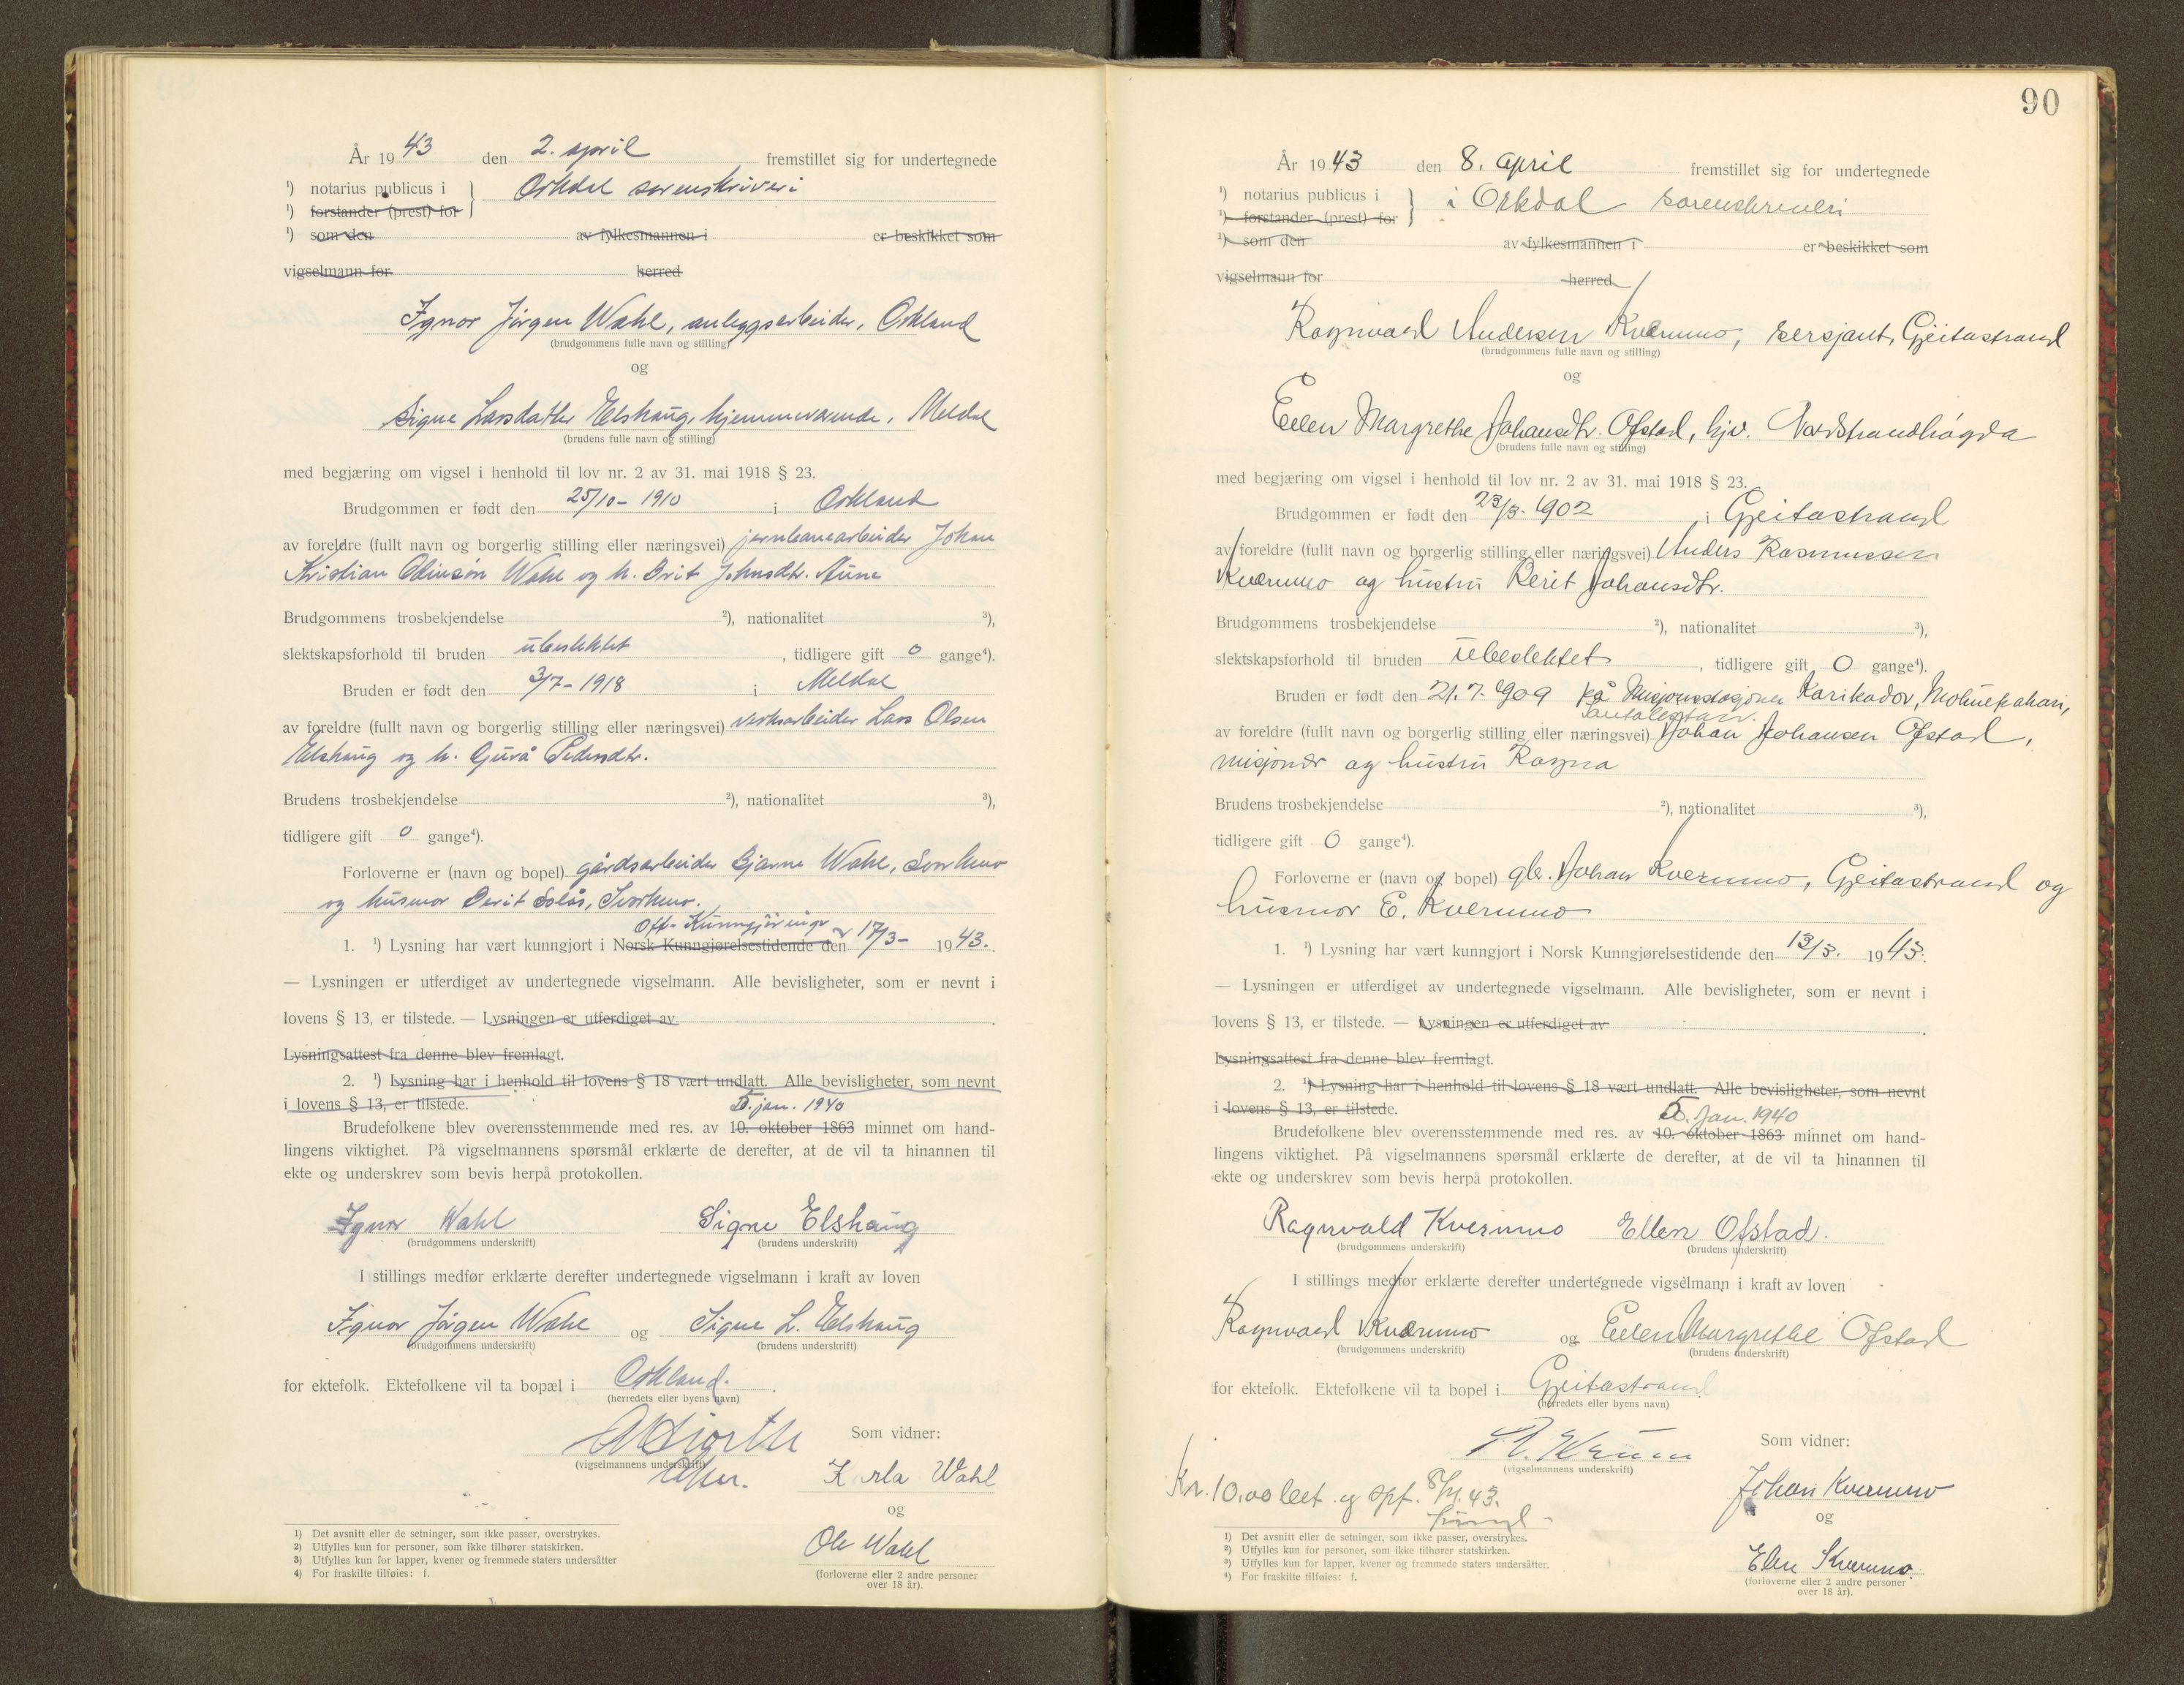 År 1943 den 2. april fremstillet sig for undertegnede
¹) notarius publicus i } Orkdal sorenskriveri
¹) forstander (prest) for
¹) som den av fylkesmannen i er beskikket som
vigselmann for herred
Ignor Jörgen Wahl, anleggsarbeider, Orkland
(brudgommens fulle navn og stilling)
og
Signe Larsdatter Elshaug, hjemmeværende, Meldal
(brudens fulle navn og stilling)
med begjæring om vigsel i henhold til lov nr. 2 av 31. mai 1918 § 23.
Brudgommen er født den 25/10 - 1910 i Orkland
av foreldre (fullt navn og borgerlig stilling eller næringsvei) jernbanearbeider Johan
Kristian Wahl og h. Brit Johnsdtr. Aune
Brudgommens trosbekjendelse ²), nationalitet ³),
slektskapsforhold til bruden ubeslektet, tidligere gift 0 gange⁴).
Bruden er født den 3/7 - 1918 i Meldal
av foreldre (fullt navn og borgerlig stilling eller næringsvei) verksarbeider Lars Olsen
Elshaug og h. Gurå Pedersdtr.
Brudens trosbekjendelse ²), nationalitet ³),
tidligere gift 0 gange⁴).
Forloverne er (navn og bopel) gårdsarbeider Bjarne Wahl, Svorkmo
og husmor Berit Solås, Svorkmo.
Off. Kunngjöringer
1. ¹) Lysning har vært kunngjort i Norsk Kunngjørelsestidende den 17/3 - 1943.
— Lysningen er utferdiget av undertegnede vigselmann. Alle bevisligheter, som er nevnt i
lovens § 13, er tilstede. — Lysningen er utferdiget av
Lysningsattest fra denne blev fremlagt.
2. ¹) Lysning har i henhold til lovens § 18 vært undlatt. Alle bevisligheter, som nevnt
i lovens § 13, er tilstede.
5. jan. 1940
Brudefolkene blev overensstemmende med res. av 10. oktober 1863 minnet om hand-
lingens viktighet. På vigselmannens spørsmål erklærte de derefter, at de vil ta hinannen til
ekte og underskrev som bevis herpå protokollen.
Ignor Wahl Signe Elshaug
(brudgommens underskrift) (brudens underskrift)
I stillings medfør erklærte derefter undertegnede vigselmann i kraft av loven
Ignor Jörgen Wahl og Signe L. Elshaug
(brudgommens underskrift) (brudens underskrift)
for ektefolk. Ektefolkene vil ta bopæl i Orkland.
(herredets eller byens navn)
Som vidner:
(vigselmannens underskrift)
Karla Wahl
og
Ole Wahl
(forloverne eller 2 andre personer
over 18 år).
¹) Det avsnitt eller de setninger, som ikke passer, overstrykes.
²) Utfylles kun for personer, som ikke tilhører statskirken.
³) Utfylles kun for lapper, kvener og fremmede staters undersåtter
⁴) For fraskilte tilføies: f.
90
År 1943 den 8. april fremstillet sig for undertegnede
¹) notarius publicus i } i Orkdal sorenskriveri
¹) forstander (prest) for
¹) som den av fylkesmannen i er beskikket som
vigselmann for herred
Ragnvald Andersen Kvernmo, sersjant, Geitastrand
(brudgommens fulle navn og stilling)
og
Ellen Margrethe Johansdtr. Ofstad, hjv. Nordstrandhögda
(brudens fulle navn og stilling)
med begjæring om vigsel i henhold til lov nr. 2 av 31. mai 1918 § 23.
Brudgommen er født den 23/3. 1902, i Geitastrand
av foreldre (fullt navn og borgerlig stilling eller næringsvei) Anders Rasmussen
Kvernmo og hustru Berit Johansdtr.
Brudgommens trosbekjendelse ²), nationalitet ³),
slektskapsforhold til bruden ubeslektet, tidligere gift 0 gange⁴).
Bruden er født den 21.7.1909 på Misjonsstasjonen Karikador, Mohulpahari,
Santalistan.
av foreldre (fullt navn og borgerlig stilling eller næringsvei) Johan Johansen Ofstad,
misjonær og hustru Ragna
Brudens trosbekjendelse ²), nationalitet ³),
tidligere gift 0 gange⁴).
Forloverne er (navn og bopel) gbr. Johan Kvernmo, Geitastrand og
husmor E. Kvernmo
1. ¹) Lysning har vært kunngjort i Norsk Kunngjørelsestidende den 13/3. 1943.
— Lysningen er utferdiget av undertegnede vigselmann. Alle bevisligheter, som er nevnt i
lovens § 13, er tilstede. — Lysningen er utferdiget av
Lysningsattest fra denne blev fremlagt.
2. ¹) Lysning har i henhold til lovens § 18 vært undlatt. Alle bevisligheter, som nevnt
i lovens § 13, er tilstede.
5. Jan. 1940
Brudefolkene blev overensstemmende med res. av 10. oktober 1863 minnet om hand-
lingens viktighet. På vigselmannens spørsmål erklærte de derefter, at de vil ta hinannen til
ekte og underskrev som bevis herpå protokollen.
Ragnvald Kvernmo Ellen Ofstad.
(brudgommens underskrift) (brudens underskrift)
I stillings medfør erklærte derefter undertegnede vigselmann i kraft av loven
Ragnvald Kvernmo og Ellen Margrethe Ofstad
(brudgommens underskrift) (brudens underskrift)
for ektefolk. Ektefolkene vil ta bopel i Geitastrand
(herredets eller byens navn)
Som vidner:
(vigselmannens underskrift)
Kr. 10,00 bet. og opf. 8/4.43.
Johan Kvernmo
og
Elen Kvernmo.
(forloverne eller 2 andre personer
over 18 år).
¹) Det avsnitt eller de setninger, som ikke passer, overstrykes.
²) Utfylles kun for personer, som ikke tilhører statskirken.
³) Utfylles kun for lapper, kvener og fremmede staters undersåtter.
⁴) For fraskilte tilføies: f.